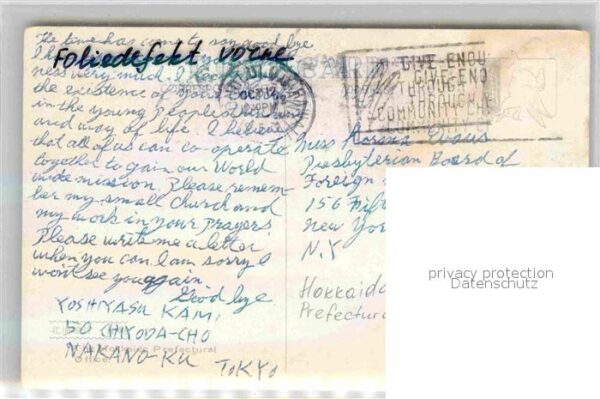 The time has come to say good bye
Foliedefekt vorne
ness very much. I
the existence of
in the young people's
and way of life. I believe
that all of us can co-operate
together to gain our World
wide mission. Please remem-
ber my small church and
my work in your prayers
Please write me a letter
when you can. I am sorry I
won't see you again.
Good bye
YOSHIYASU KAMI
50 CHIYODA-CHO
NAKANO-KU TOKYO
Hokkaido Prefectural
Office
GIVE ENOU
GIVE ENO
THROUGH
COMMUNITY
Miss
Presbyterian Board of
Foreign
156 Fif
New York
N.Y
Hokkaido
Prefectura
privacy protection
Datenschutz